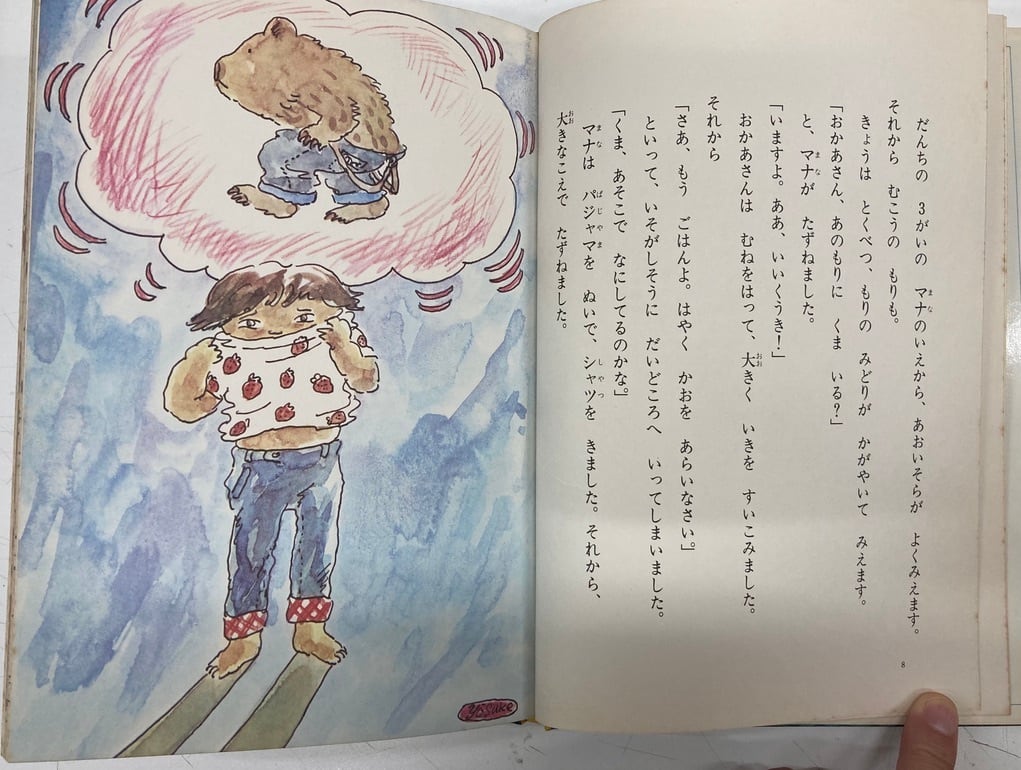 だんちの 3がいの マナのいえから、あおいそらが よくみえます。
それから むこうの もりも。
きょうは とくべつ、もりの みどりが かがやいて みえます。
「おかあさん、あのもりに くま いる？」
と、マナが たずねました。
「いますよ。ああ、いいくうき！」
おかあさんは むねをはって、大きく いきを すいこみました。
それから
「さあ、もう ごはんよ。はやく かおを あらいなさい。」
といって、いそがしそうに だいどころへ いってしまいました。
「くま、あそこで なにしてるのかな。」
マナは パジャマを ぬいで、シャツを きました。それから、
大きなこえで たずねました。
8
YOSUKE